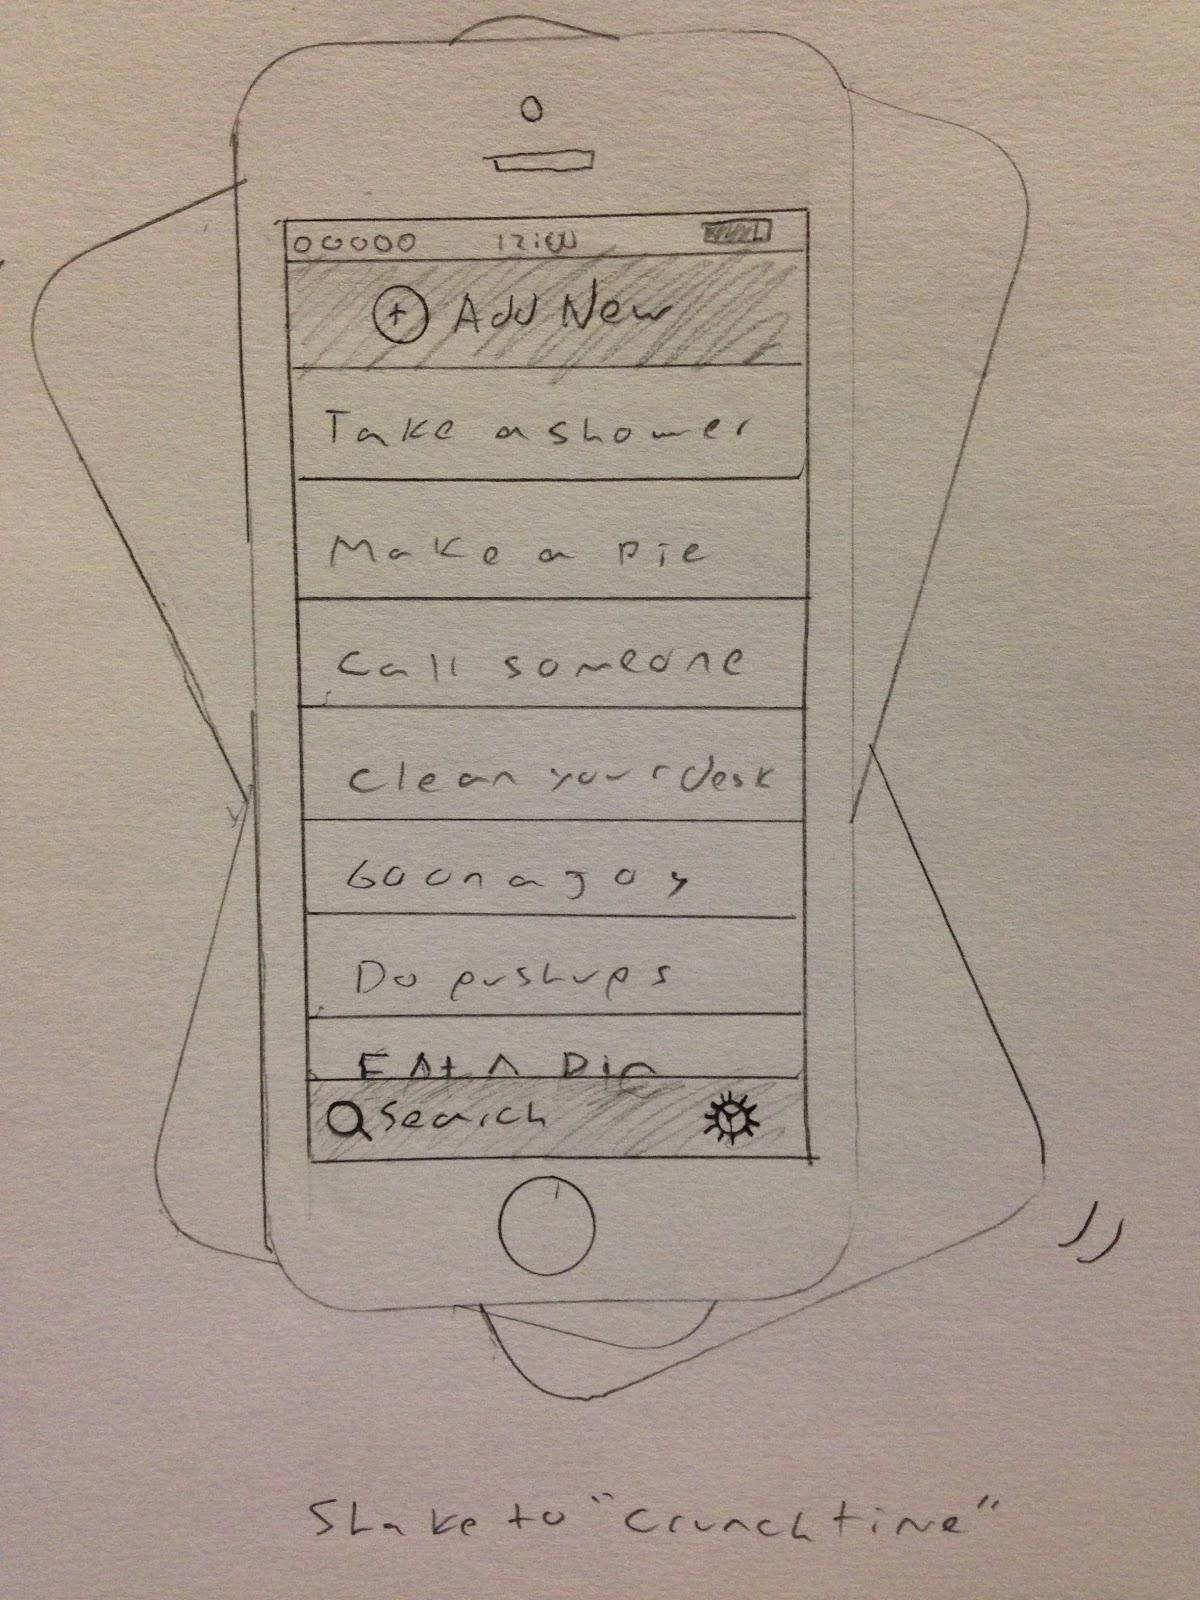 Add New
Take a shower
Make a pie
Call someone
Clean your desk
Go on a joy
Do pushups
EAt A Pie
Search
Shake to "crunch time"